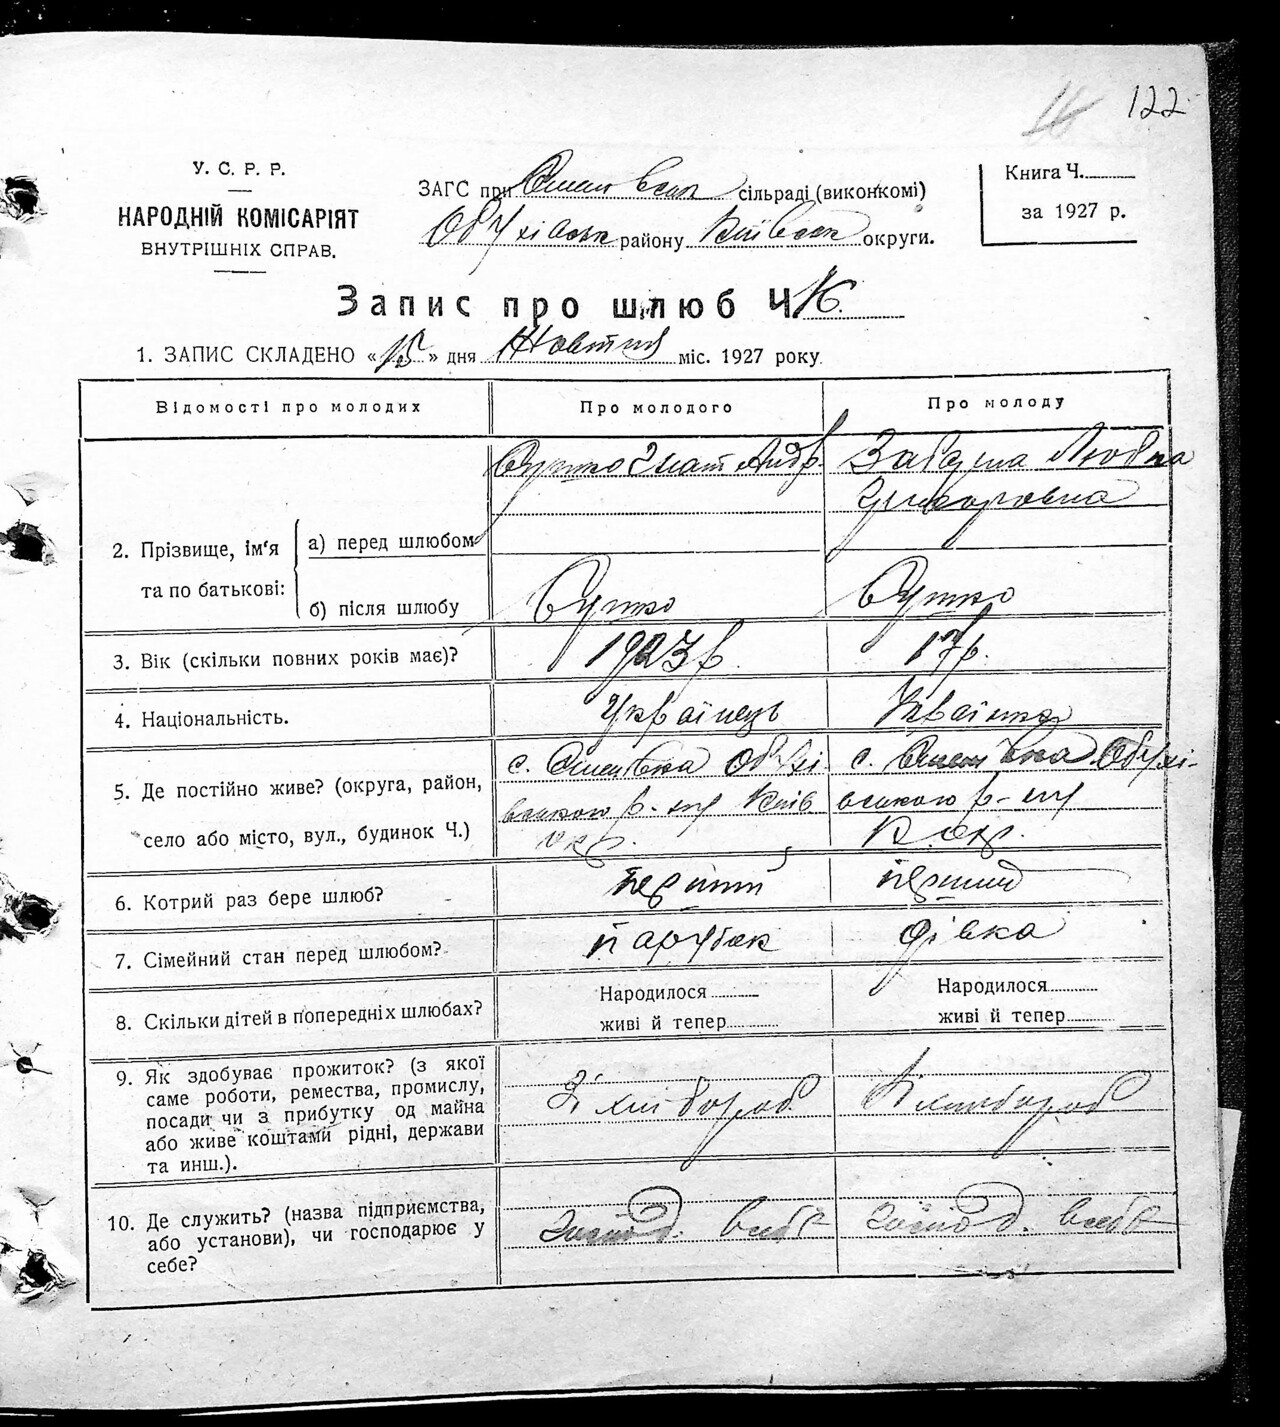 122
У. С. Р. Р.
НАРОДНІЙ КОМІСАРІЯТ
ВНУТРІШНІХ СПРАВ.
ЗАГС при сільраді (виконкомі)
Обухівськ району Київськ округи.
Книга Ч.
за 1927 р.
Запис про шлюб Ч
1. ЗАПИС СКЛАДЕНО «15» дня Жовтня міс. 1927 року.
Відомості про молодих
Про молодого
Про молоду
2. Прізвище, ім'я та по батькові:
а) перед шлюбом
Игнат Андр.
Любка
Григоровна
б) після шлюбу
3. Вік (скільки повних років має)?
1923р.
17р.
4. Національність.
Українець
Українка
5. Де постійно живе? (округа, район,
село або місто, вул., будинок Ч.)
с. Обухі-
вського р-ну Київ
окр.
с. Обухі-
вського р-ну
К. окр.
6. Котрий раз бере шлюб?
перший
перший
7. Сімейний стан перед шлюбом?
парубок
дівка
8. Скільки дітей в попередніх шлюбах?
Народилося
живі й тепер
Народилося
живі й тепер
9. Як здобуває прожиток? (з якої
саме роботи, ремества, промислу,
посади чи з прибутку од майна
або живе коштами рідні, держави
та инш.).
Хлібороб
Хлібороб
10. Де служить? (назва підприємства,
або установи), чи господарює у
себе?
Господ. в себе
Господ. в себе